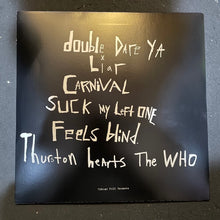 double Dare YA
x Liar
CARNIVAL
SUCK My Left ONE
Feels blind.
Thurston hearts The WHO